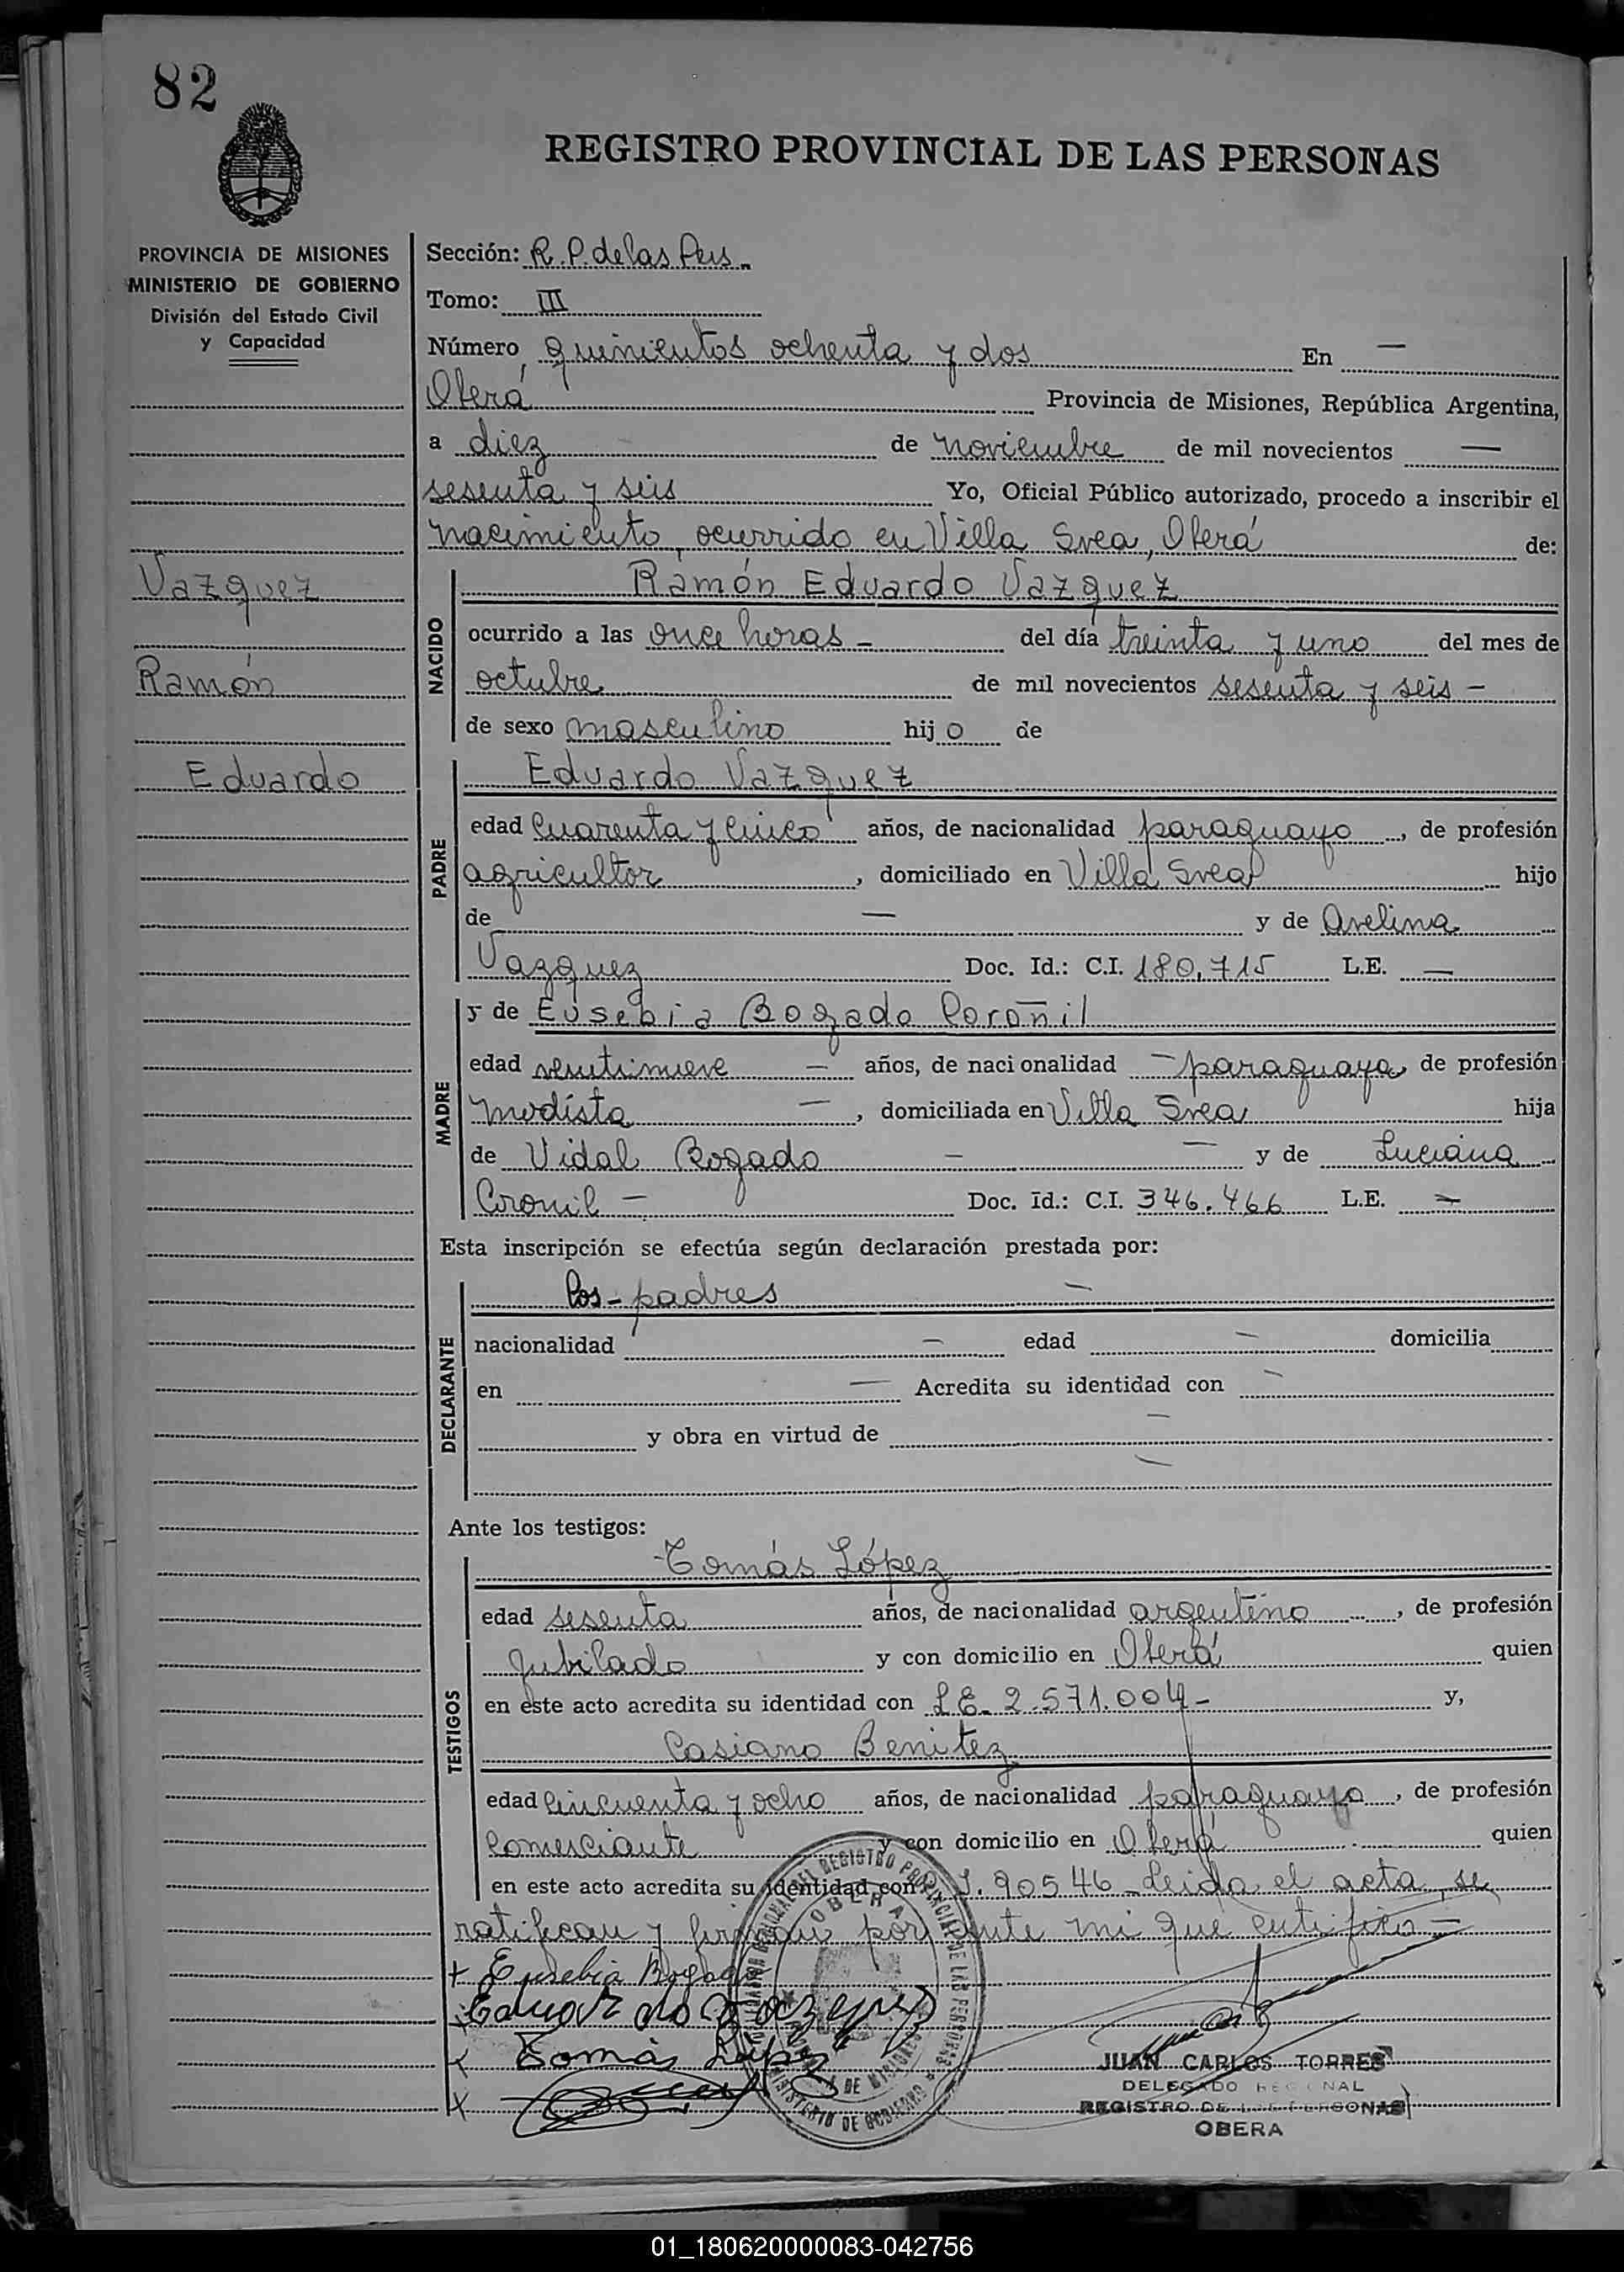 82
REGISTRO PROVINCIAL DE LAS PERSONAS
PROVINCIA DE MISIONES
MINISTERIO DE GOBIERNO
División del Estado Civil
y Capacidad
Vazquez
Ramón
Eduardo
Sección: R. P. de las Pers.
Tomo: III
Número quinientos ochenta y dos En —
Oberá Provincia de Misiones, República Argentina,
a diez de noviembre de mil novecientos —
sesenta y seis Yo, Oficial Público autorizado, procedo a inscribir el
nacimiento, ocurrido en Villa Svea, Oberá de:
NACIDO
Ramón Eduardo Vazquez
ocurrido a las once horas - del día treinta y uno del mes de
octubre de mil novecientos sesenta y seis -
de sexo masculino hijo de
PADRE
Eduardo Vazquez
edad cuarenta y cinco años, de nacionalidad paraguayo, de profesión
agricultor, domiciliado en Villa Svea hijo
de — y de Avelina
Vazquez Doc. Id.: C.I. 180.715 L.E. —
MADRE
y de Eusebia Bogado Coroñil
edad veintinueve — años, de nacionalidad — paraguaya, de profesión
modista —, domiciliada en Villa Svea hija
de Vidal Bogado — — y de Luciana
Cronil — Doc. Id.: C.I. 346.466 L.E. —
Esta inscripción se efectúa según declaración prestada por:
DECLARANTE
los - padres —
nacionalidad — edad — domicilia
en — Acredita su identidad con —
y obra en virtud de —
—
Ante los testigos:
TESTIGOS
Tomás López
edad sesenta años, de nacionalidad argentino, de profesión
jubilado y con domicilio en Oberá quien
en este acto acredita su identidad con L.E. 2.571.004 - y,
Casiano Benitez
edad cincuenta y ocho años, de nacionalidad paraguayo, de profesión
comerciante y con domicilio en Oberá quien
en este acto acredita su identidad con 90546 - Leída el acta, se
ratifican y firman por ante mi que certifico —
+ Eusebia Bogado
x Eduardo Vazquez
x Tomás López
x
OBERA
MINISTERIO DE GOBIERNO
JUAN CARLOS TORRES
DELEGADO REGIONAL
REGISTRO DE LAS PERSONAS
OBERA
01_180620000083-042756